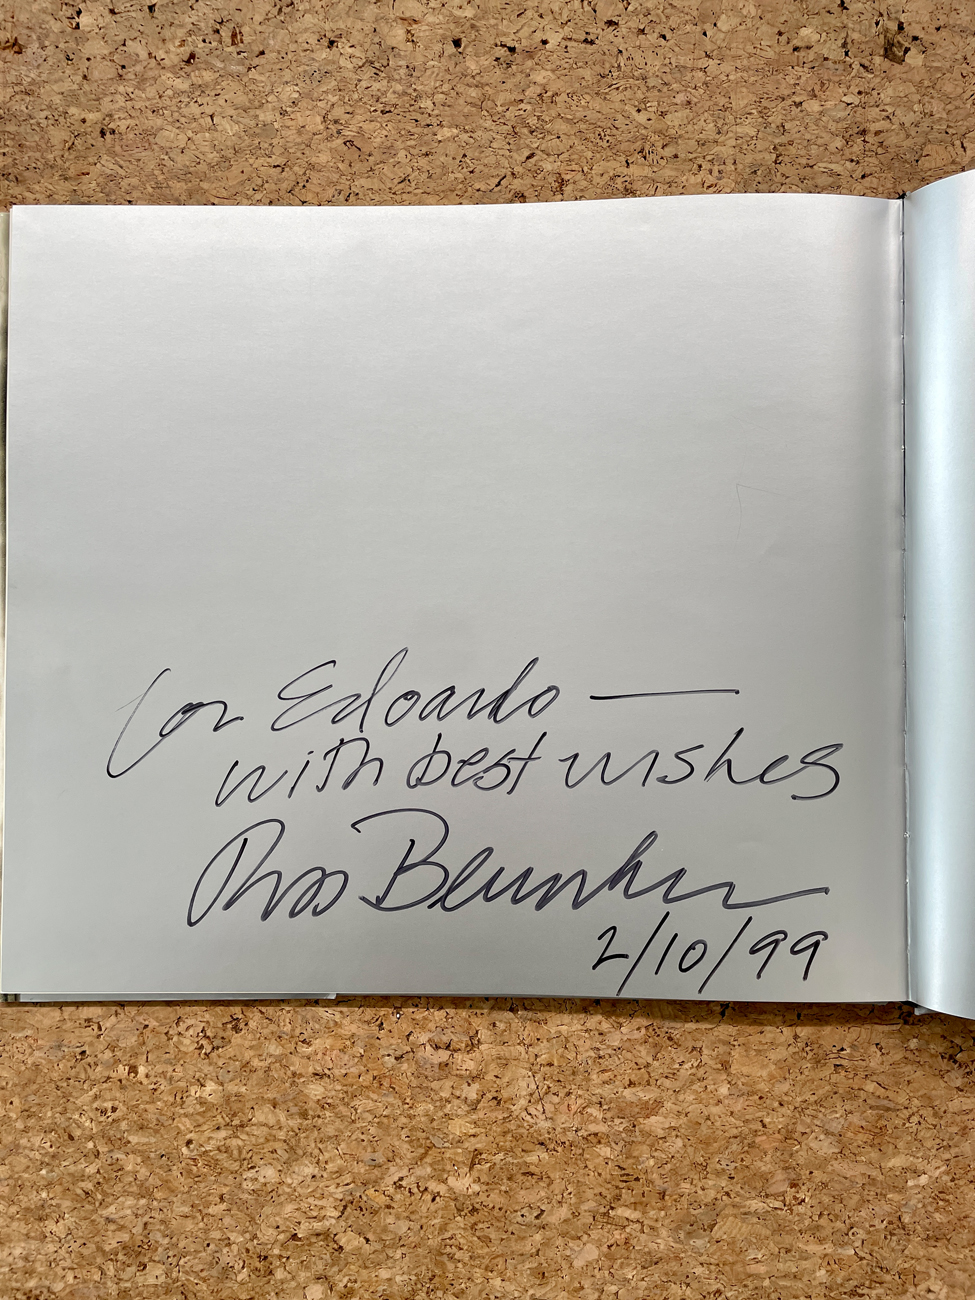 for Edoardo —
with best wishes
Ross Bleckner
2/10/99